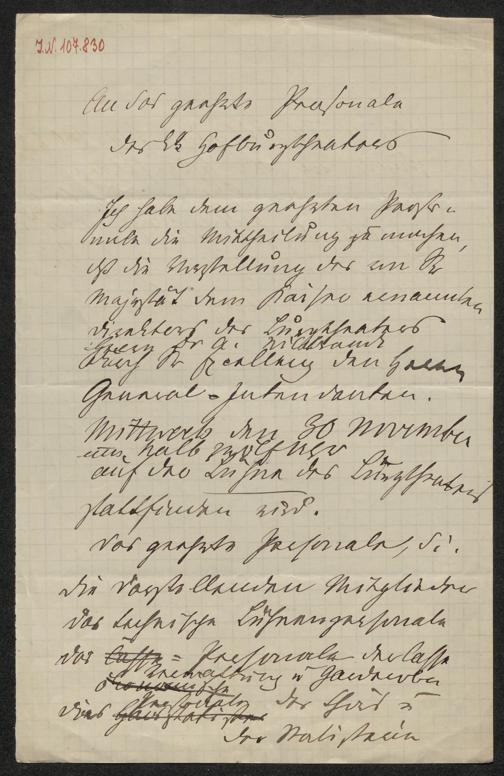 J.N. 107.830
An das geehrte Personale
des kk Hofburgtheaters
Ich habe dem geehrten Perso-
nale die Mittheilung zu machen,
daß die Vorstellung des von Sr
Majestät dem Kaiser ernannten
Direktors des Burgtheaters
Herrn Dr A. Wilbrandt
durch Sr Excellenz den Herrn
General-Intendanten.
Mittwoch den 30 November
um halb zwölf Uhr
auf der Bühne des Burgtheaters
stattfinden wird.
Das geehrte Personale, d. i.
die darstellenden Mitglieder
das technische Bühnenpersonale
das Personale der Cassa
Verwaltung u Garderobe
der
der Statisterie